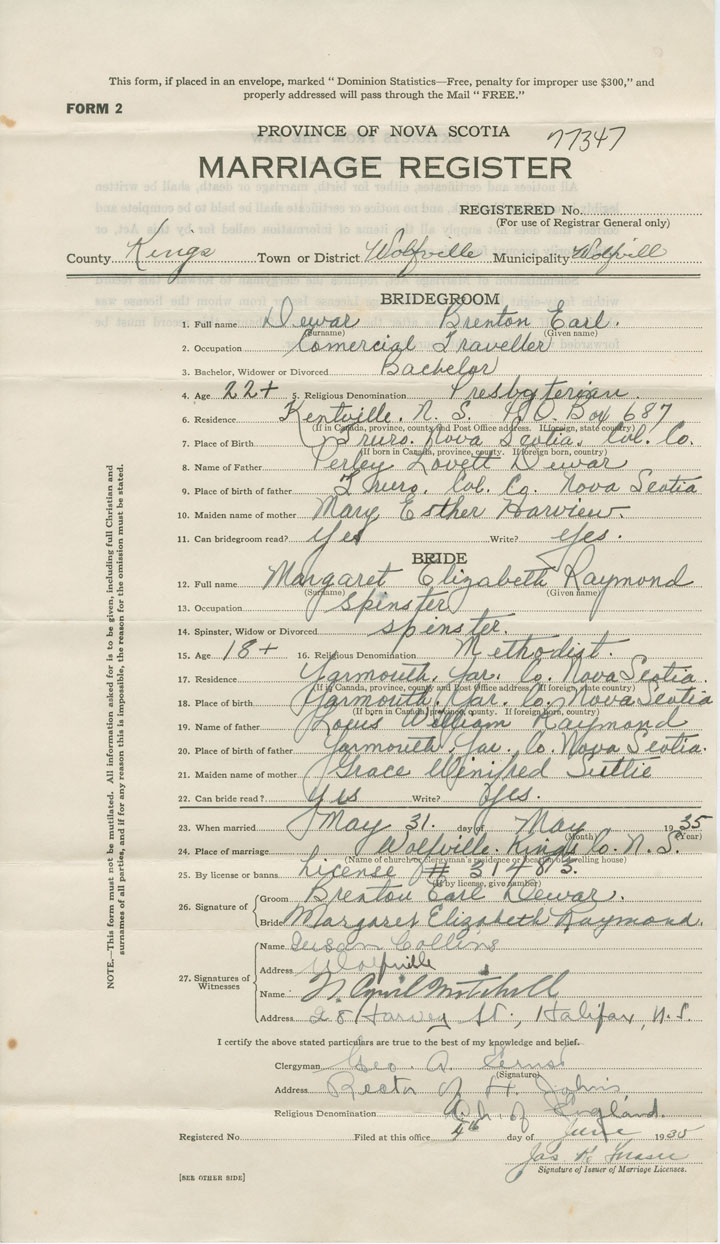 This form, if placed in an envelope, marked " Dominion Statistics—Free, penalty for improper use $300," and
properly addressed will pass through the Mail " FREE."
FORM 2
PROVINCE OF NOVA SCOTIA 77347
MARRIAGE REGISTER
REGISTERED No.
(For use of Registrar General only)
County Kings Town or District Wolfville Municipality Wolfvill
BRIDEGROOM
1. Full name Dewar Brenton Earl.
(Surname) (Given name)
2. Occupation Comercial Traveller
3. Bachelor, Widower or Divorced Bachelor
4. Age 22+ 5. Religious Denomination Presbyterian.
6. Residence Kentville. N. S. P.O. Box 687
(If in Canada, province, county and Post Office address. If foreign, state country)
7. Place of Birth Truro. Nova Scotia. Col. Co.
(If born in Canada, province, county. If foreign born, country)
8. Name of Father Perley Lovett Dewar
9. Place of birth of father Truro. Col. Co. Nova Scotia
10. Maiden name of mother Mary Esther Harview.
11. Can bridegroom read? Yes Write? Yes.
BRIDE
12. Full name Margaret Elizabeth Raymond
(Surname) (Given name)
13. Occupation Spinster
14. Spinster, Widow or Divorced spinster.
15. Age 18+ 16. Religious Denomination Methodist.
17. Residence Yarmouth. Yar. Co. Nova Scotia.
(If in Canada, province, county and Post Office address. If foreign, state country)
18. Place of birth Yarmouth. Yar. Co. Nova Scotia
(If born in Canada, province, county. If foreign born, country)
19. Name of father Louis William Raymond
20. Place of birth of father Yarmouth. Yar. Co. Nova Scotia.
21. Maiden name of mother Grace Winifred Suttie
22. Can bride read? Yes Write? Yes.
23. When married May 31. day of May 1935
(Month) (Year)
24. Place of marriage Wolfville. Kings Co. N. S.
(Name of church or clergyman's residence or location of dwelling house)
25. By license or banns License # 31483.
(If by license, give number)
26. Signature of Groom Brenton Earl Dewar.
Bride Margaret Elizabeth Raymond.
27. Signatures of Witnesses
Name Susan Collins
Address Wolfville
Name Mitchell
Address 28 Harvey St., Halifax, N.S.
I certify the above stated particulars are true to the best of my knowledge and belief.
Clergyman Geo. A. Ernst
(Signature)
Address Rector of St. John's
Religious Denomination Ch. of England.
Registered No. Filed at this office 4th day of June 1935
Jas
Signature of Issuer of Marriage Licenses.
[SEE OTHER SIDE]
NOTE.—This form must not be mutilated. All information asked for is to be given, including full Christian and
surnames of all parties, and if for any reason this is impossible, the reason for the omission must be stated.